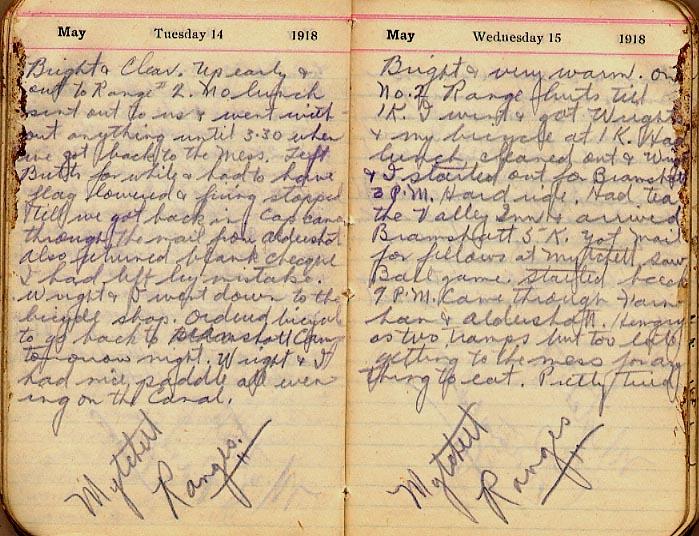 May Tuesday 14 1918
Bright & Clear. Up early &
out to Range # 2. No lunch
sent out to us & went with-
out anything until 3.30 when
we got back to the Mess. Left
Butts for while & had to have
flag lowered & firing stopped
till we got back in. Cap came
through the mail from Aldershot
also returned blank cheque
I had left by mistake.
Wright & I went down to the
bicycle shop. Ordered bicycle
to go back to Bramshott Camp
tomorrow night. Wright & I
had nice paddle all even
ing on the Canal.
Mytchett
Ranges.
May Wednesday 15 1918
Bright & very warm. On
No. 2 Range butts till
1K. I went & got Wright
& my bicycle at 1K. Had
lunch, cleaned out & Wright
& I started out for Bramshott
3 P.M. Hard ride. Had tea
the Valley Inn & arrived
Bramshott 5 K. Got mail
for fellows at Mytchett, saw
Ball game. started back
9 P.M. Came through Farn
ham & Aldershot. Hungry
as two tramps but too late
getting to the mess for any
thing to eat. Pretty tired
Mytchett
Ranges